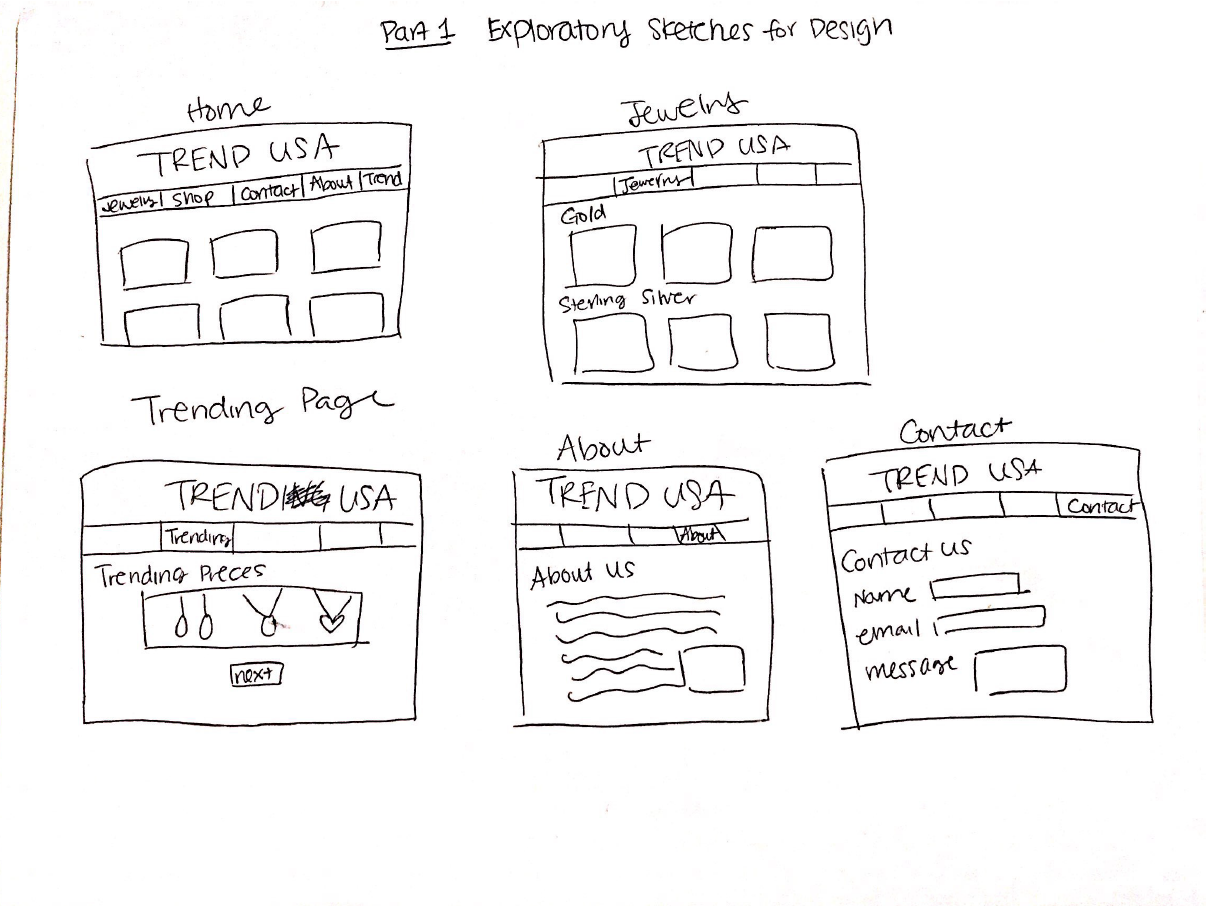 Part 1 Exploratory Sketches for Design
Home
TREND USA
Jewelry Shop Contact About Trend
Jewelry
TREND USA
Jewelry
Gold
Sterling Silver
Trending Page
TREND USA
Trending
Trending Pieces
next
About
TREND USA
About
About us
Contact
TREND USA
Contact
Contact us
Name
email
message